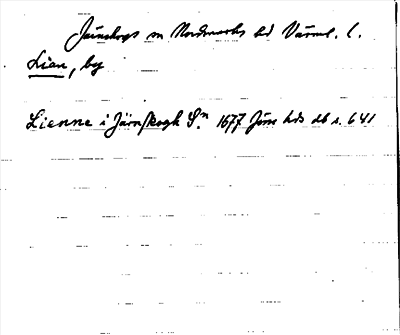 Järnskogs sn Nordmarks hd Värml. l.
Lian, by
Lienne i Järnskogh Sn. 1677 Jöss hds db s. 641